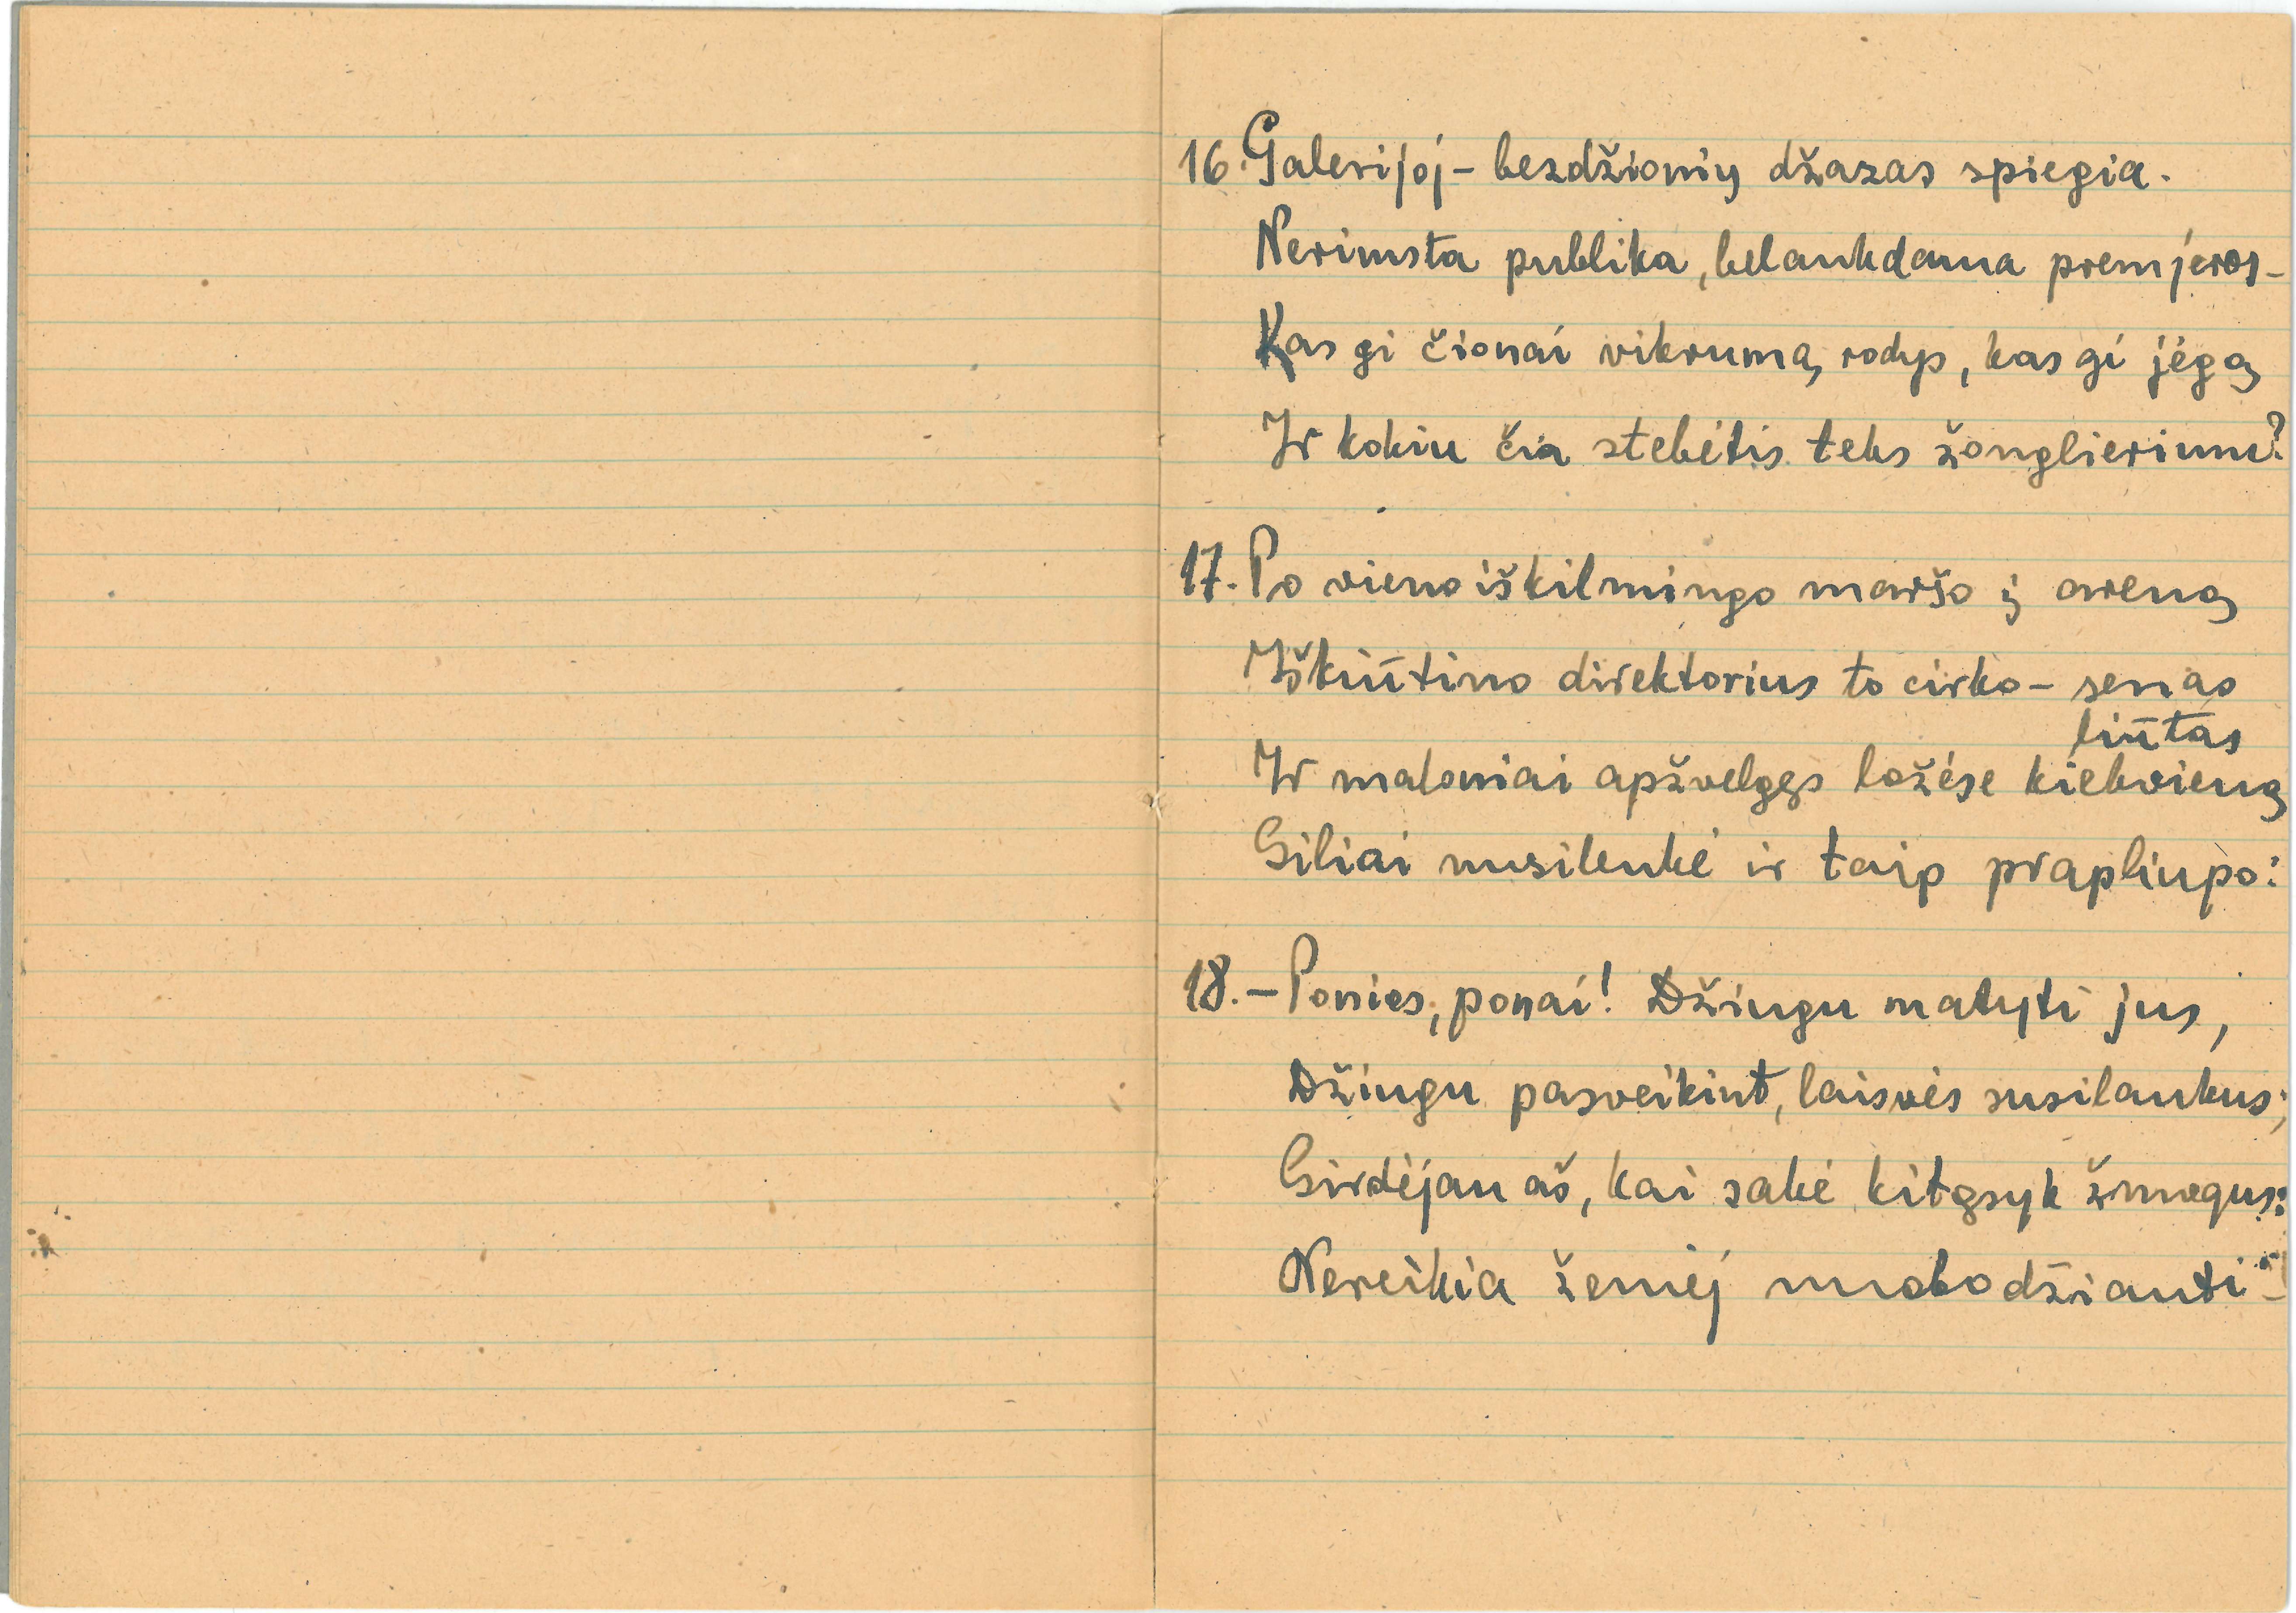 16. Galerijoj – bezdžionių džazas spiegia.
Nerimsta publika, belaukdama premjeros –
Kas gi čionai vikrumą rodys, kas gi jėgą
Ir kokiu čia stebėtis teks žonglierium?
17. Po vieno iškilmingo maršo į areną
Iškiūtino direktorius to cirko – senas
liūtas
Ir maloniai apžvelgęs ložėse kiekvieną
Giliai nusilenkė ir taip prapliupo:
18. – Ponios, ponai! Džiugu matyti jus,
Džiugu pasveikint, laisvės susilaukus;
Girdėjau aš, kai sakė kitąsyk žmogus:
Nereikia žemėj nuobodžiauti" –